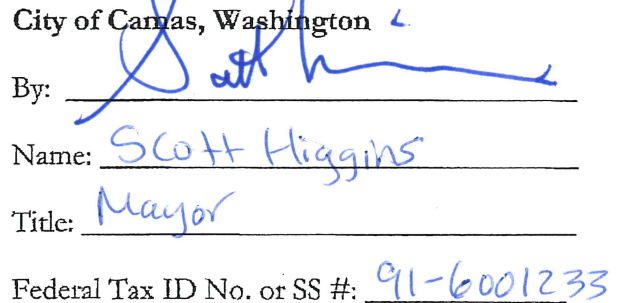 City of Camas, Washington
By: Scott
Name: Scott Higgins
Title: Mayor
Federal Tax ID No. or SS #: 91-6001233